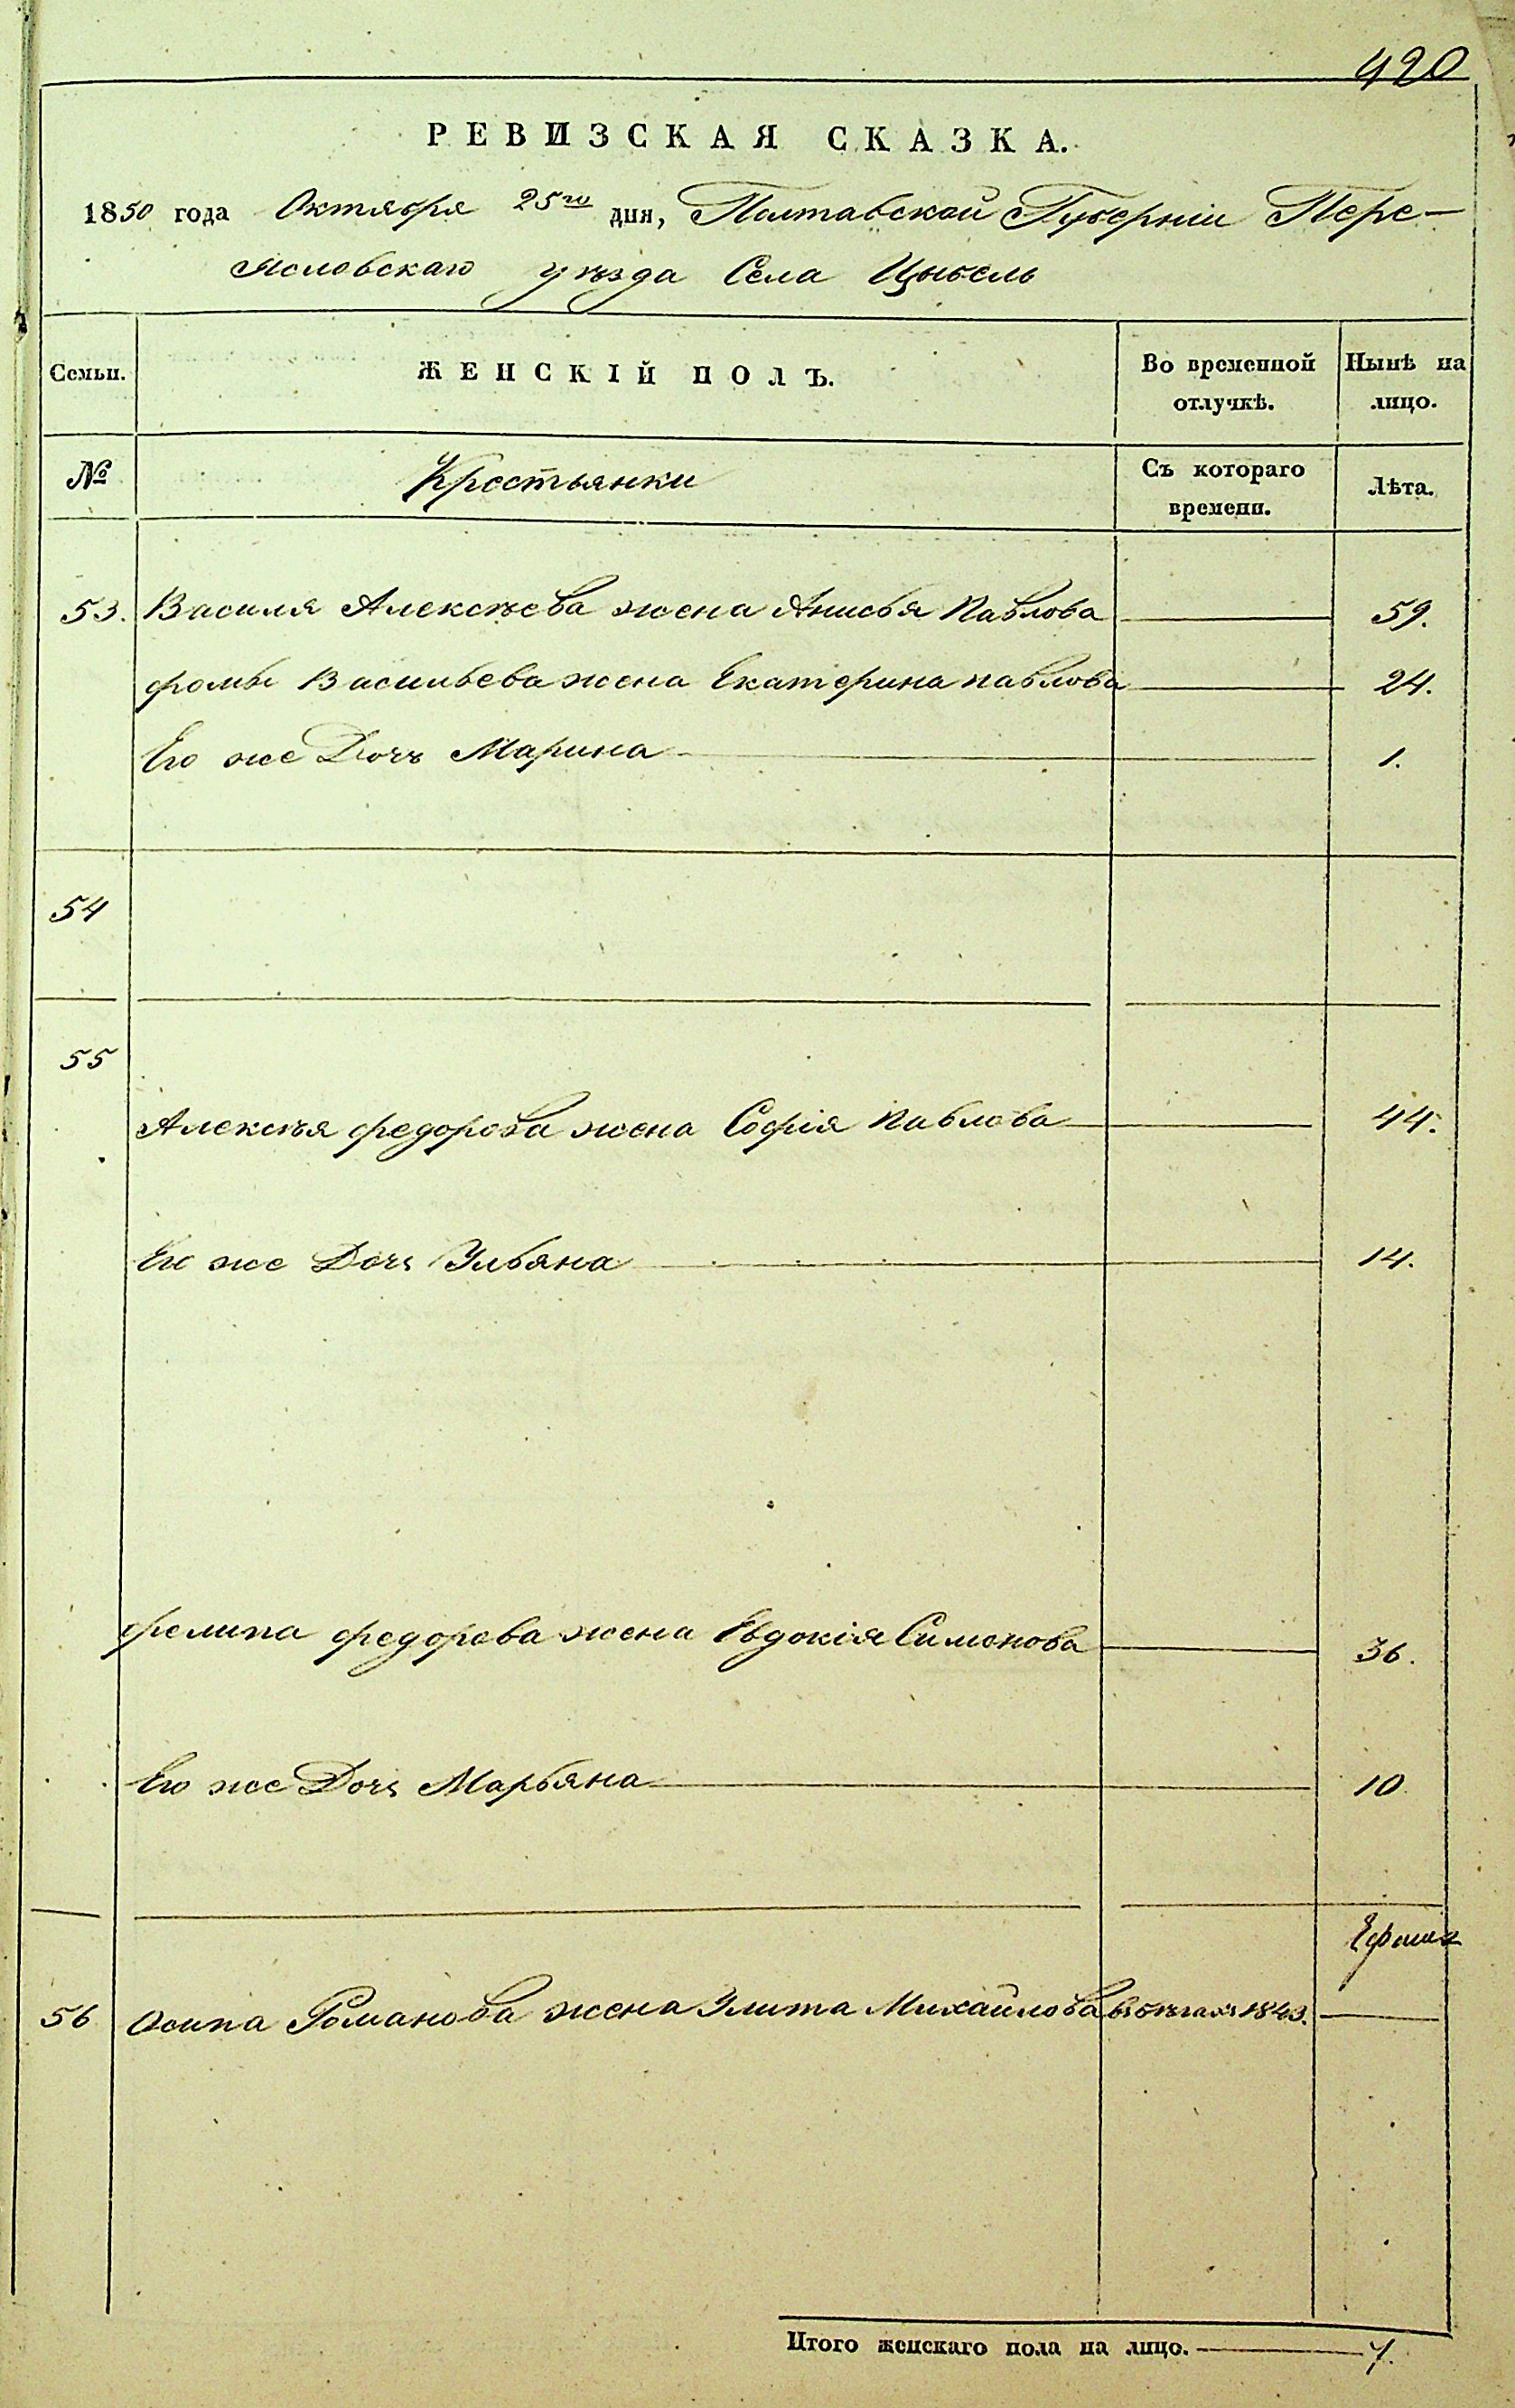 420
РЕВИЗСКАЯ СКАЗКА.
1850 года Октября 25го дня, Полтавской Губерніи Пере-
ясловскаго уѣзда Села Цыбель
Семьи. ЖЕНСКІЙ ПОЛЪ. Во временной отлучкѣ. Нынѣ на лицо.
№ Крестьянки Съ котораго времени. Лѣта.
53. Василя Алексѣева жена Анисья Павлова 59.
фомы Васильева жена Екатерина павлова 24.
Его же Дочь Марина 1.
54
55
Алексѣя федорова жена Софія Павлова 44.
Его же Дочь Ульяна 14.
фелипа федорова жена Евдокія Симонова 36.
Его же Дочь Марьяна 10
56 Осипа Романова жена Улита Михайлова въ бѣгахъ 1843.
Итого женскаго пола на лицо. 7.